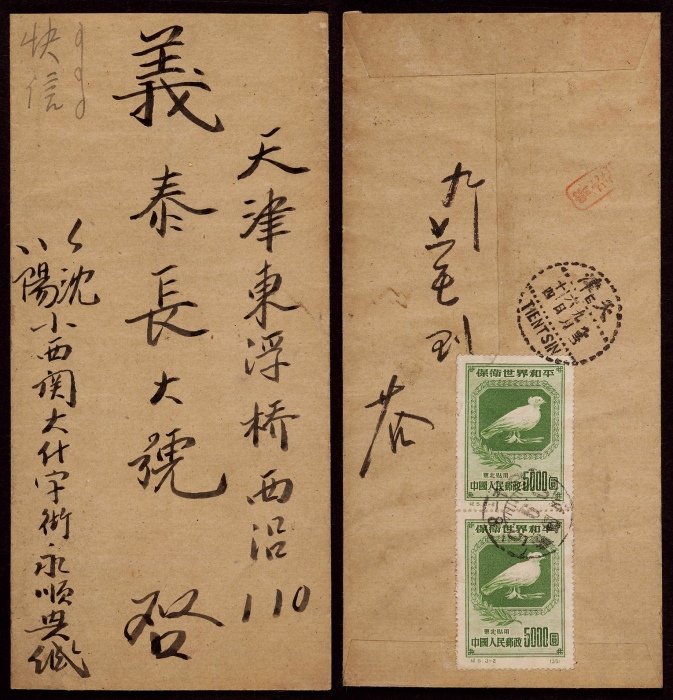 快信
天津東浮橋西沿110
義泰長大號 啓
沈陽小西關大什字街永順興緘
九
到
荅
天津
TIENTSIN
保衛世界和平
東北貼用
中國人民郵政 5000圓
保衛世界和平
東北貼用
中國人民郵政 5000圓